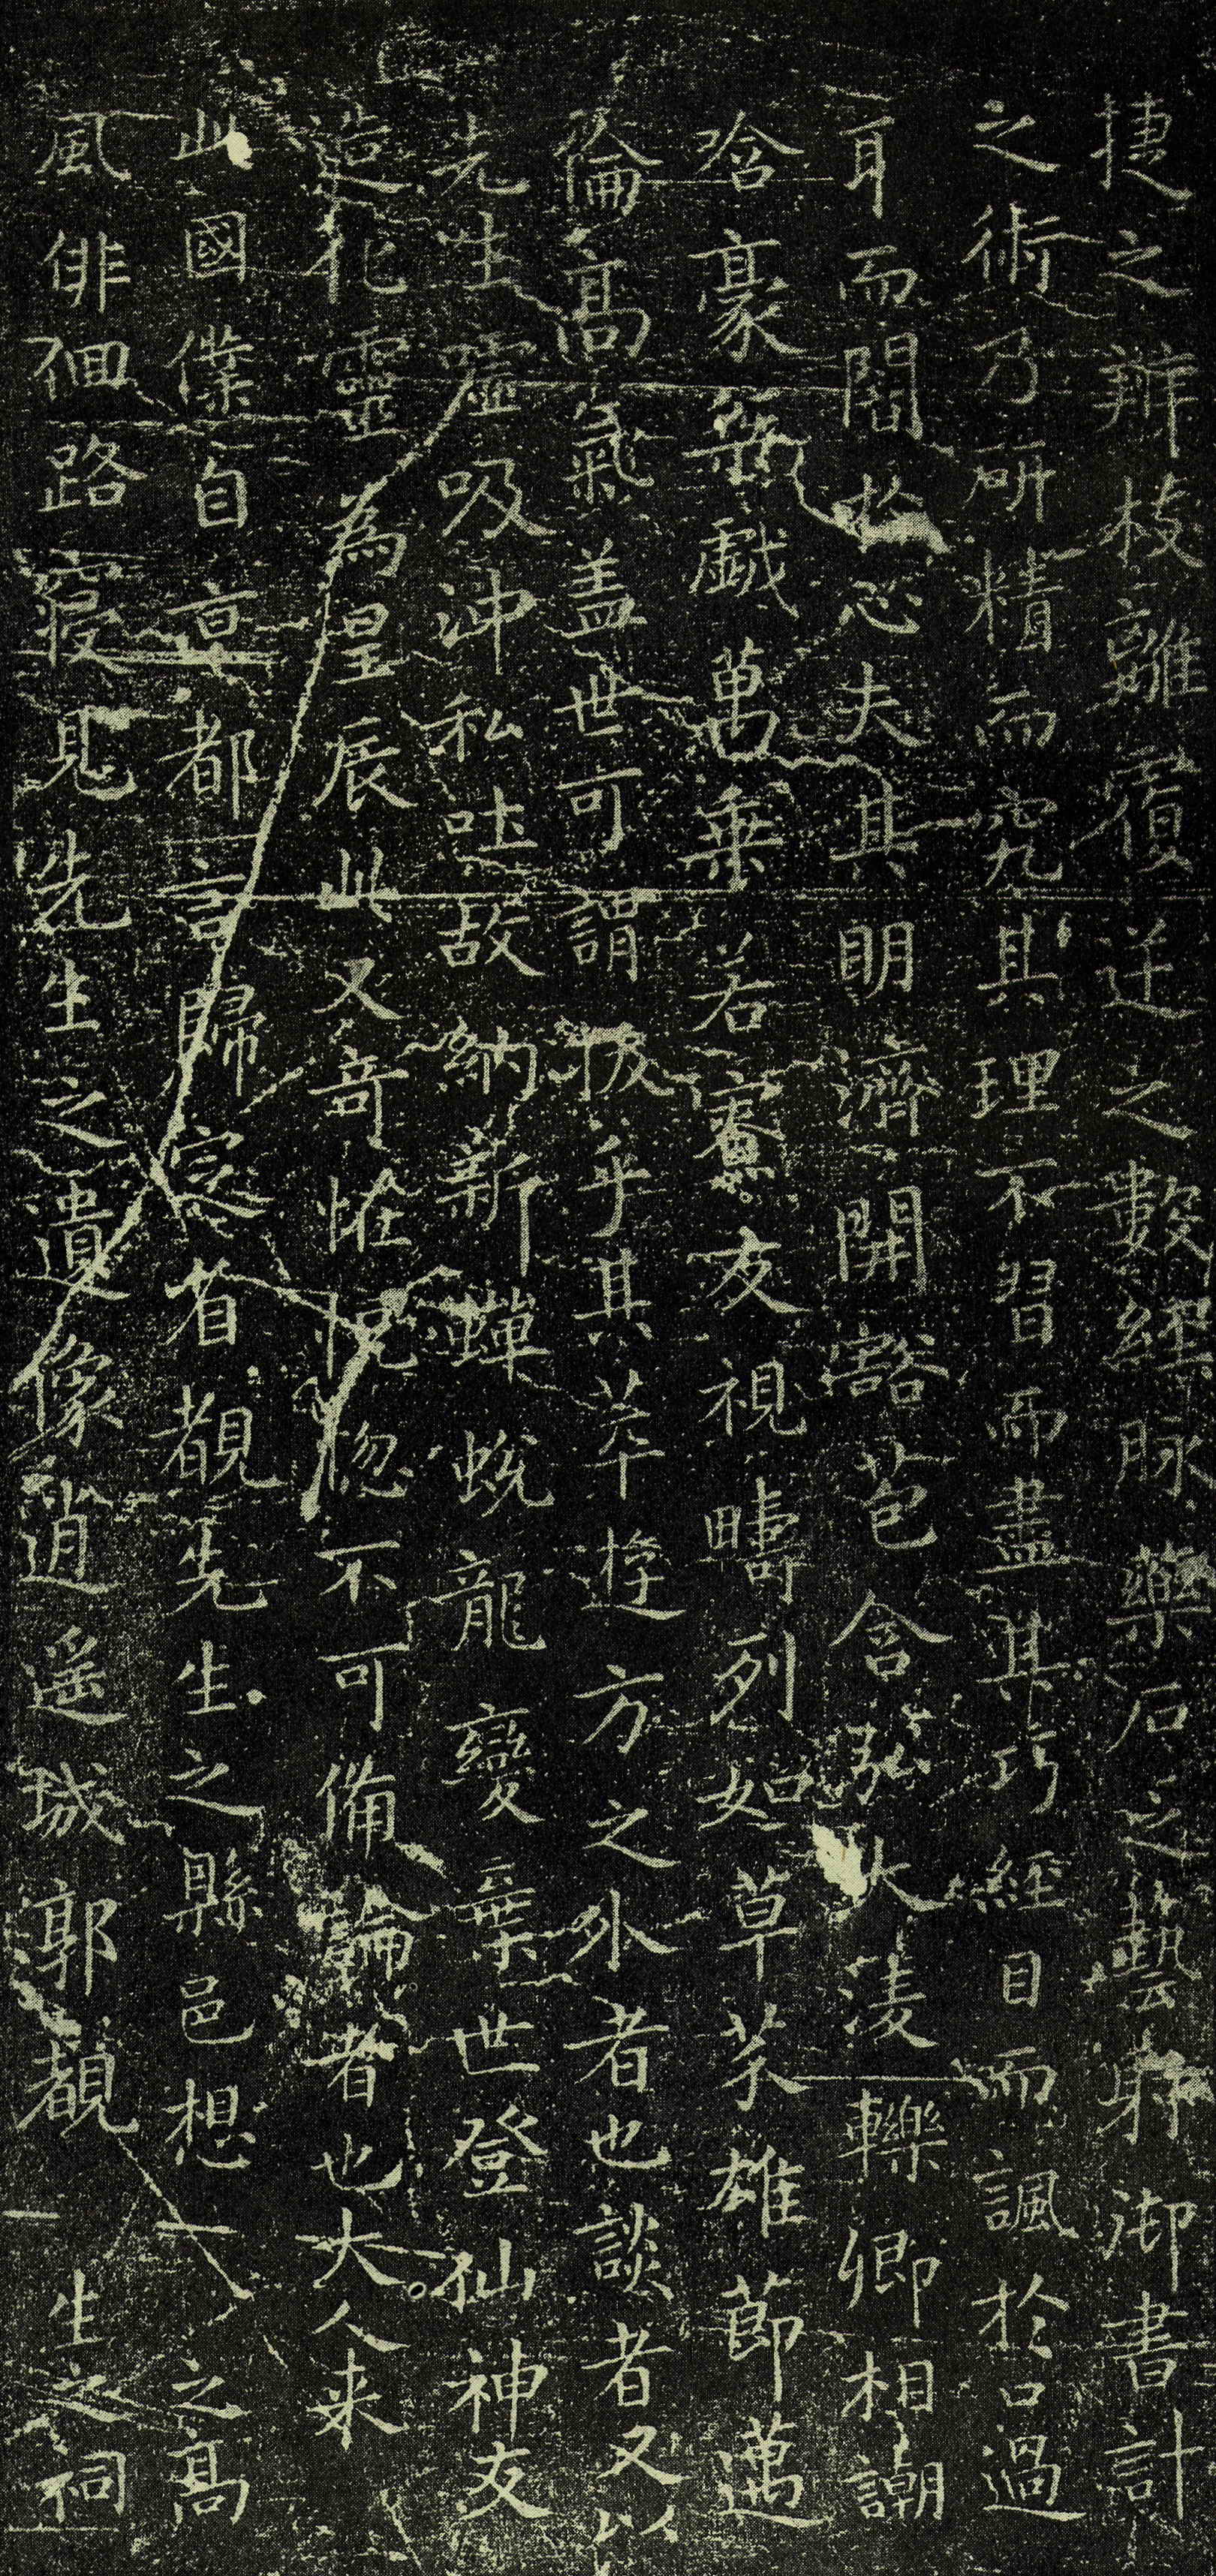 捷之辨枝離覆逆之數經脉藥石之藝射御書計
之術乃研精而究其理不習而盡其巧經目而諷於口過
耳而闇於心夫其明濟開豁苞含弘大淩轢卿相謿
哈豪桀戲萬乘若寮友視疇列如草芥雄節邁
倫高氣盖世可謂拔乎其萃遊方之外者也談者又以
先生噓吸沖和吐故納新蟬蛻龍變棄世登仙神友
造化靈為星辰此又奇怪恍惚不可備論者也大人来
此國僕自京都言歸定省覩先生之縣邑想之高
風俳佪路寑見先生之遺像逍遙城郭覩生之祠